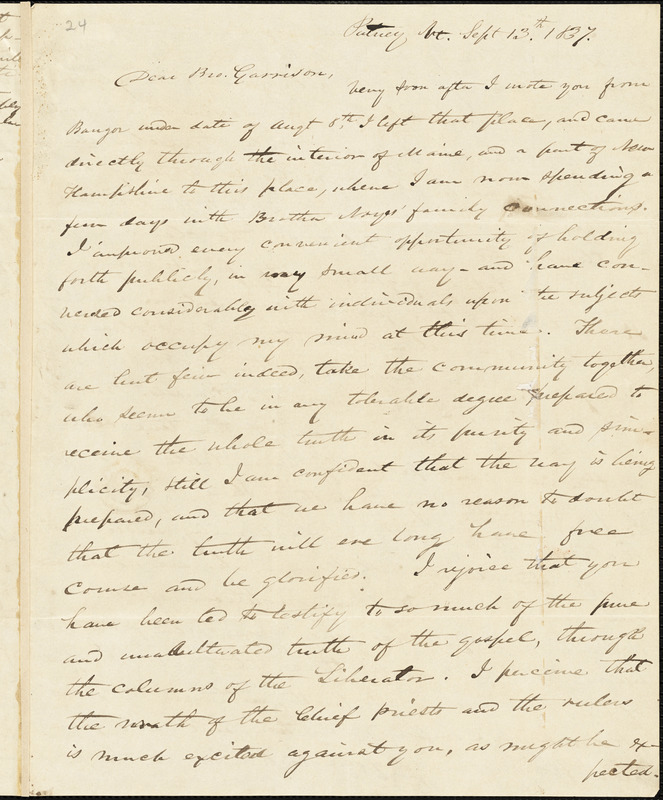 24
Putney Vt. Sept 13.th 1837.
Dear Bro. Garrison,
Very soon after I wrote you from
Bangor under date of Augt 8th, I left that place, and came
directly through the interior of Maine, and a part of New
Hampshire to this place, where I am now spending a
few days with Brother Noyes' family connections.
I improved every convenient opportunity of holding
forth publicly, in my small way - and have con-
versed considerably with individuals upon the subjects
which occupy my mind at this time. There
are but few indeed, take the community together,
who seem to be in any tolerable degree prepared to
receive the whole truth in its purity and sim-
plicity, still I am confident that the way is being
prepared, and that we have no reason to doubt
that the truth will ere long have free
course and be glorified. I rejoice that you
have been led to testify to so much of the pure
and unadulterated truth of the gospel, through
the columns of the Liberator. I perceive that
the wrath of the Chief priests and the rulers
is much excited against you, as might be ex-
pected.